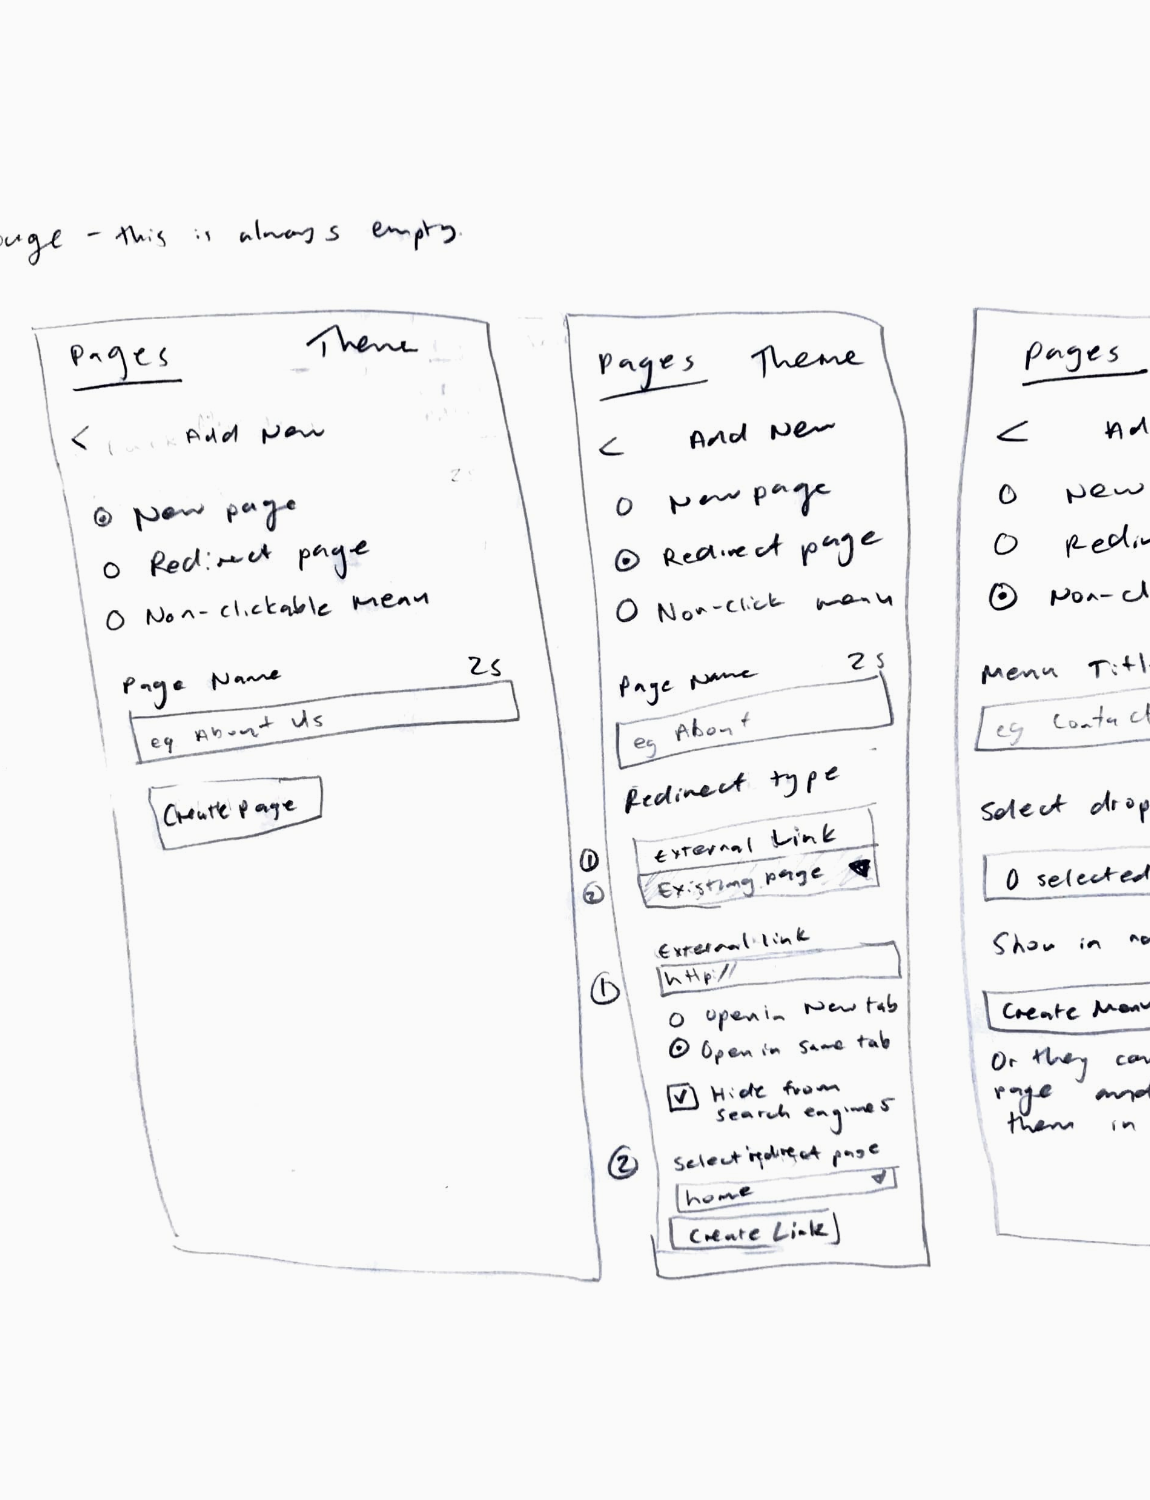 - this is always empty.
Pages Theme
< Add New
New page
Redirect page
Non-clickable menu
Page Name 25
eg About Us
Create page
Pages Theme
< Add New
New page
Redirect page
Non-click menu
Page Name 25
eg About
Redirect type
① External Link
② Existing page
External link
① http://
Open in New tab
Open in same tab
Hide from
search engines
② Select redirect page
home
Create Link
Pages
< Ad
New
Redir
Non-cl
Menu Titl
eg Contact
Select drop
0 selected
Show in na
Create Menu
Or they can
page and
them in